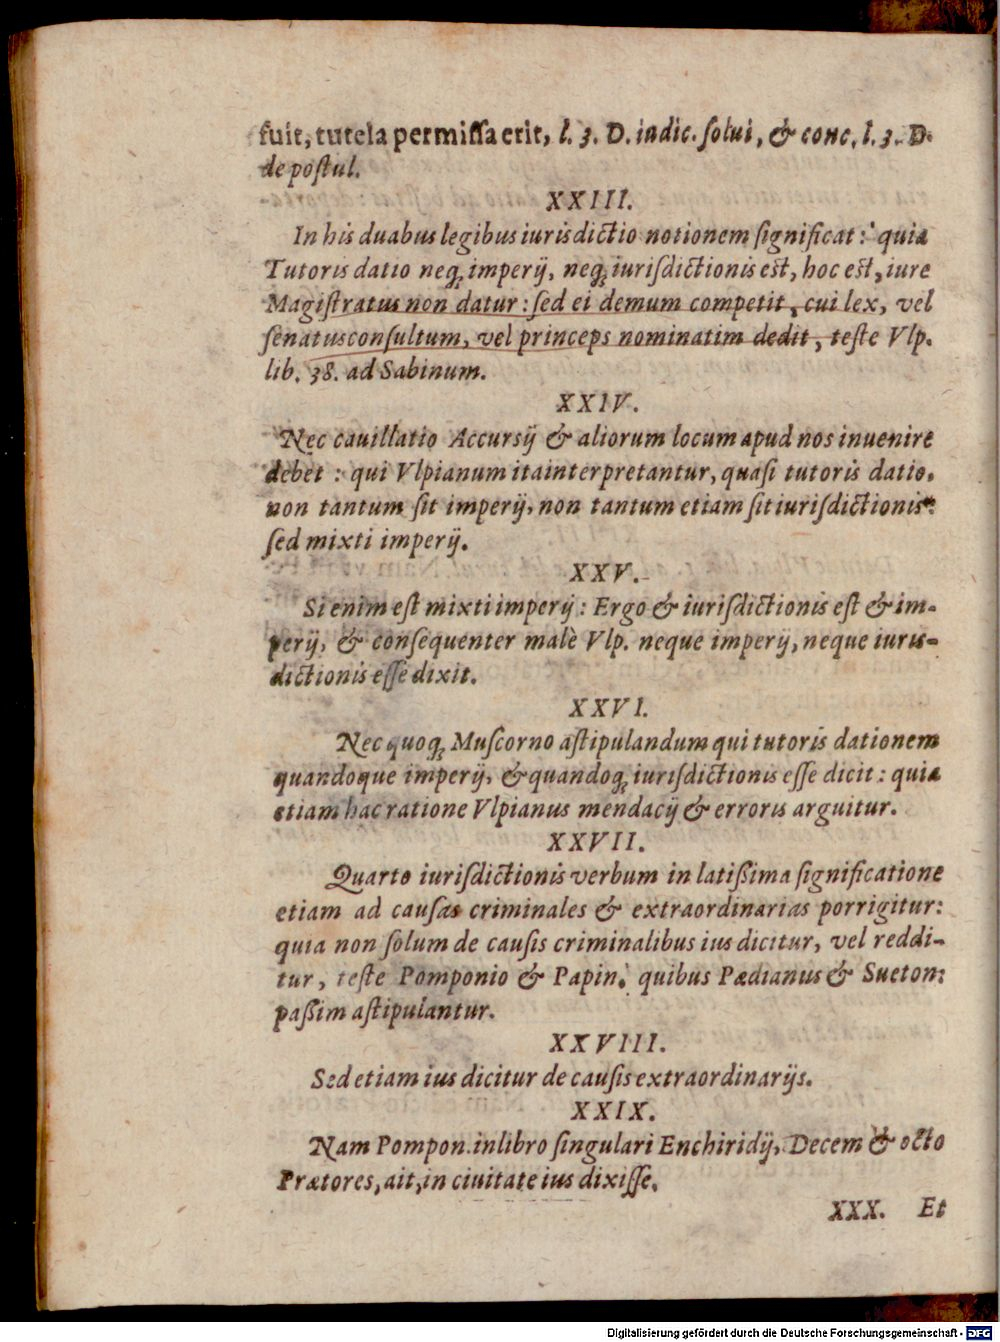 fuit, tutela permiſſa erit, l. 3. D. iudic. ſolui, & conc. l. 3. D.
de poſtul.
XXIII.
In his duabus legibus iurisdictio notionem ſignificat: quia
Tutoris datio neq́; imperij, neq́; iuriſdictionis est, hoc est, iure
Magiſtratus non datur: ſed ei demum competit, cui lex, vel
ſenatusconſultum, vel princeps nominatim dedit, teſte Vlp.
lib. 38. ad Sabinum.
XXIV.
Nec cauillatio Accursij & aliorum locum apud nos inuenire
debet: qui Vlpianum ita interpretantur, quaſi tutoris datio,
non tantum ſit imperij, non tantum etiam ſit iuriſdictionis:
ſed mixti imperij.
XXV.
Si enim eſt mixti imperij: Ergo & iuriſdictionis eſt & im-
perij, & conſequenter malè Vlp. neque imperij, neque iuris-
dictionis eſſe dixit.
XXVI.
Nec quoq; Muſcorno aſtipulandum qui tutoris dationem
quandoque imperij, & quandoq; iuriſdictionis eſſe dicit: quia
etiam hac ratione Vlpianus mendacij & erroris arguitur.
XXVII.
Quarto iuriſdictionis verbum in latißima ſignificatione
etiam ad cauſas criminales & extraordinarias porrigitur:
quia non ſolum de cauſis criminalibus ius dicitur, vel reddi-
tur, teſte Pomponio & Papin. quibus Pædianus & Sueton:
paßim aſtipulantur.
XXVIII.
Sed etiam ius dicitur de cauſis extraordinarijs.
XXIX.
Nam Pompon. in libro ſingulari Enchiridij, Decem & octo
Prætores, ait, in ciuitate ius dixiſſe.
XXX. Et
Digitalisierung gefördert durch die Deutsche Forschungsgemeinschaft - DFG